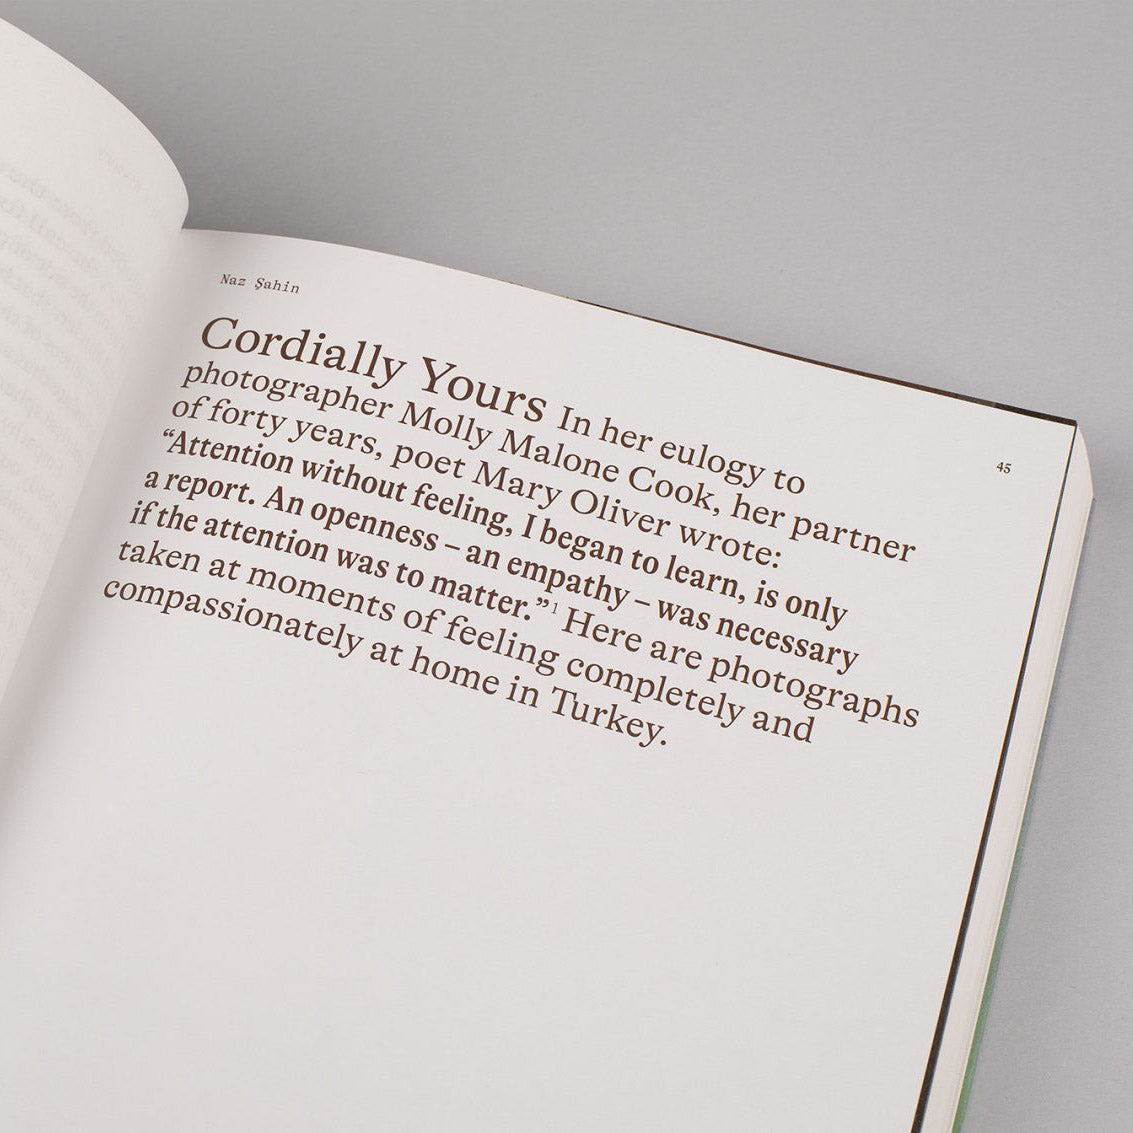 Naz Şahin
Cordially Yours In her eulogy to
photographer Molly Malone Cook, her partner
of forty years, poet Mary Oliver wrote:
“Attention without feeling, I began to learn, is only
a report. An openness – an empathy – was necessary
if the attention was to matter.”¹ Here are photographs
taken at moments of feeling completely and
compassionately at home in Turkey.
45